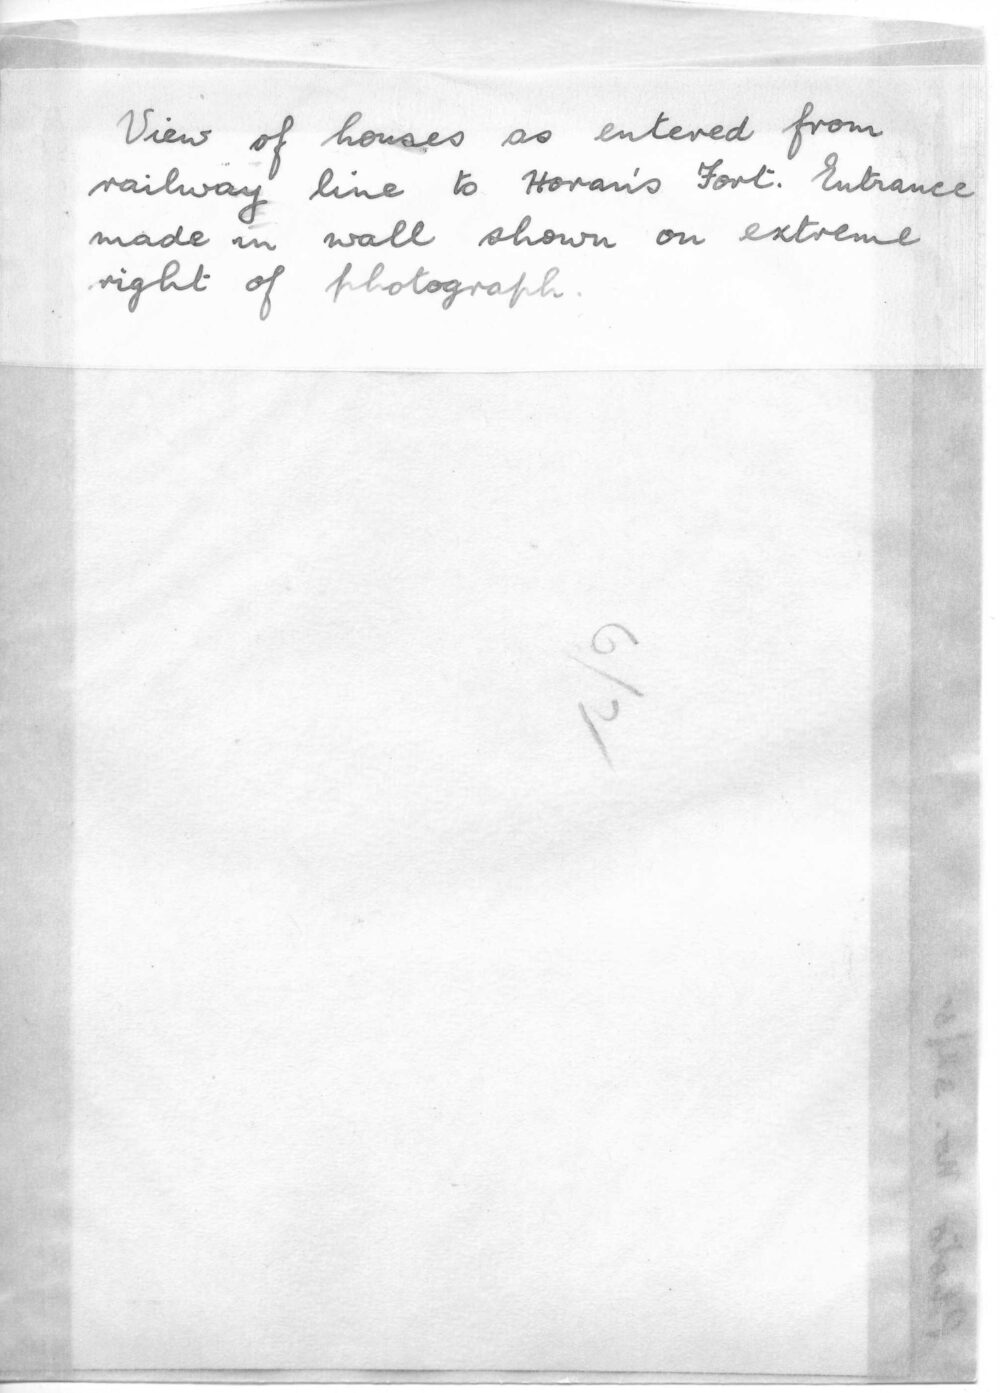 View of houses as entered from
railway line to Horan's Fort. Entrance
made in wall shown on extreme
right of photograph.
6/2